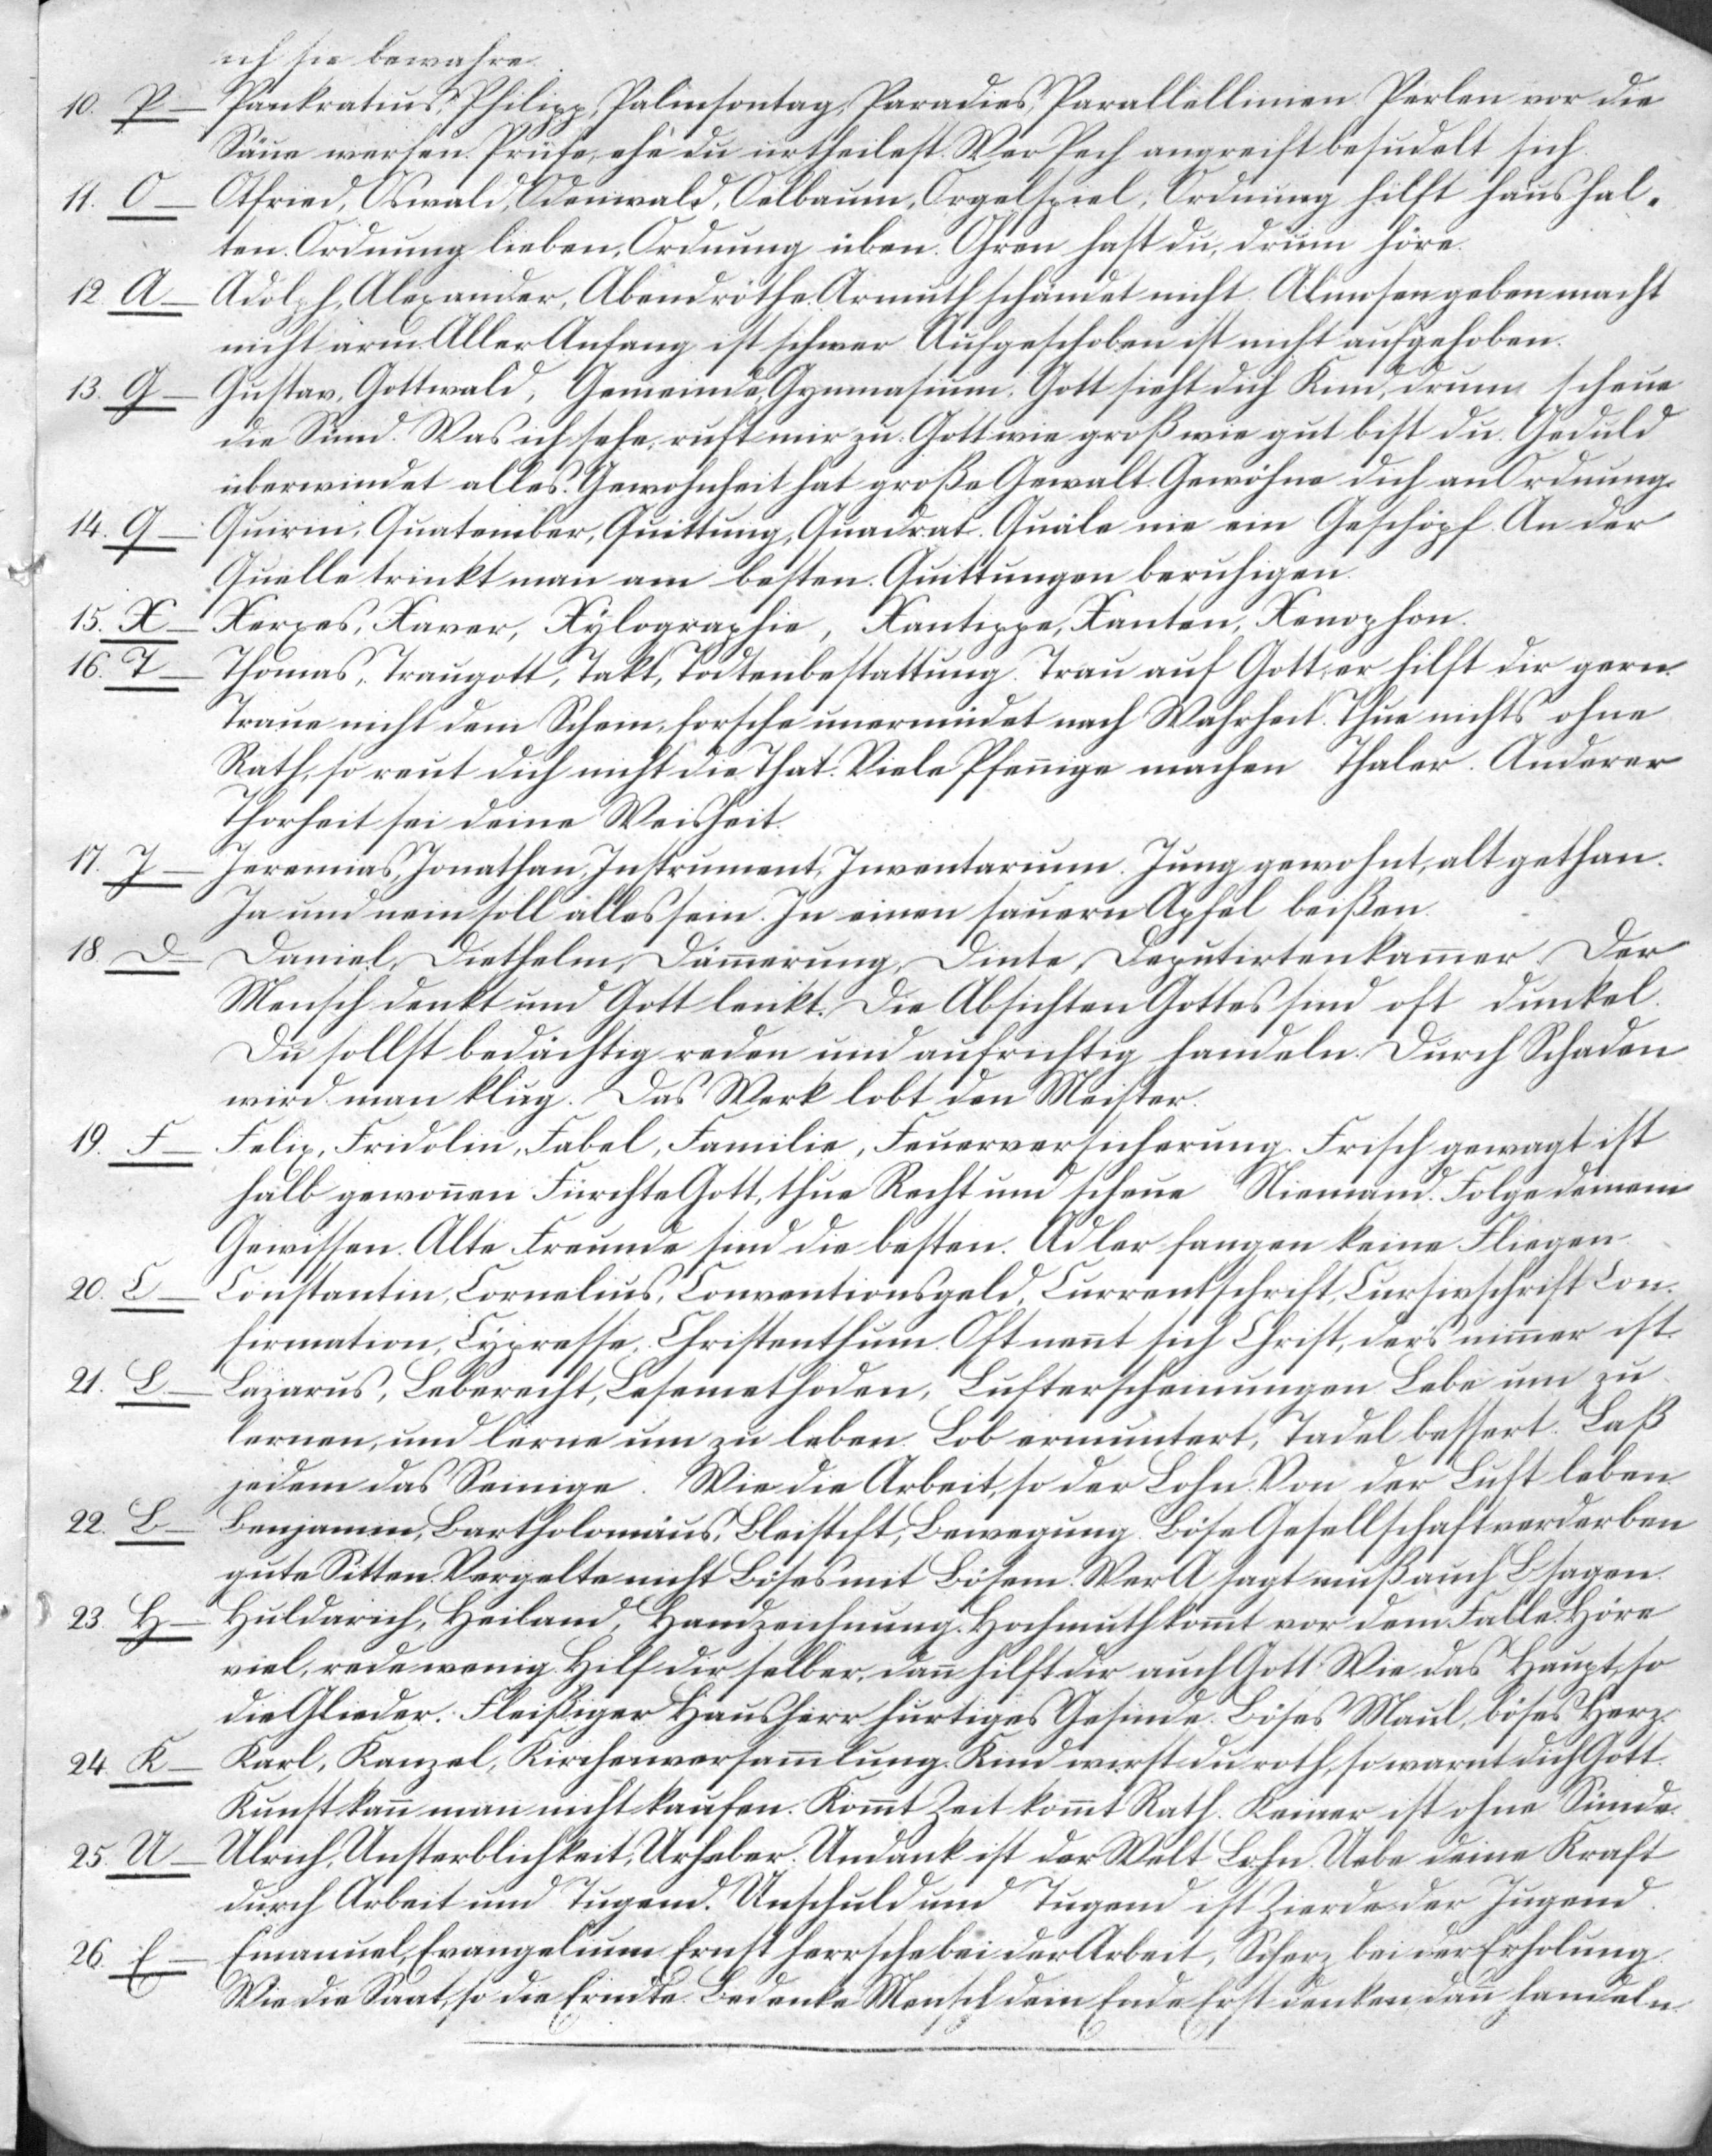 ich sie bewahre.
10. P — Pankratius, Philipp, Palmsontag, Paradies, Parallellinien. Perlen vor die
Säue werfen. Prüfe, ehe du urtheilest. Wer Pech angreift besudelt sich.
11. O — Otfried, Oswald, Odenwald, Oelbaum, Orgelspiel, Ordnung hilft haushal-
ten. Ordnung lieben, Ordnung üben. Ohren hast du, drum höre.
12. A — Adolph, Alexander, Abendröthe, Armuth schändet nicht. Almosen geben macht
nicht arm. Aller Anfang ist schwer. Aufgeschoben ist nicht aufgehoben.
13. G — Gustav, Gottwald, Gemeinde, Gymnasium. Gott sieht dich Kind, drum scheue
die Sünd. Was ich sehe, ruft mir zu: Gott wie groß wie gut bist du. Geduld
überwindet alles. Gewohnheit hat große Gewalt. Gewöhne dich an Ordnung.
14. Q — Quirin, Quatember, Quittung, Quadrat. Quäle nie ein Geschöpf. An der
Quelle trinkt man am besten. Quittungen beruhigen.
15. X — Xerxes, Xaver, Xÿlographie, Xantippe, Xanten, Xenophon.
16. T — Thomas, Traugott, Takt, Todtenbestattung. Trau auf Gott, er hilft dir gern.
Traue nicht dem Schein, forsche unermüdet nach Wahrheit. Thue nichts ohne
Rath, so reut dich nicht die That. Viele Pfen̄ige machen Thaler. Anderer
Thorheit sei deine Weisheit.
17. J — Jeremias, Jonathan, Instrument, Inventarium. Jung gewohnt, alt gethan.
Ja und nein soll alles sein. In einen sauern Apfel beißen.
18. D — Daniel, Diethelm, Däm̄erung, Dinte, Deputirtenkam̄er. Der
Mensch denkt und Gott lenkt. Die Absichten Gottes sind oft dunkel.
Du sollst bedächtig reden und aufrichtig handeln. Durch Schaden
wird man klug. Das Werk lobt den Meister.
19. F — Felix, Fridolin, Fabel, Familie, Feuerversicherung. Frisch gewagt ist
halb gewon̄en. Fürchte Gott, thue Recht und scheue Niemand. Folge deinem
Gewissen. Alte Freunde sind die besten. Adler fangen keine Fliegen.
20. C — Constantin, Cornelius, Conventionsgeld, Currentschrift, Cursivschrift Con-
firmation, Cÿpresse, Christenthum. Oft nen̄t sich Christ, der's nim̄er ist.
21. L — Lazarus, Leberecht, Lesemethoden, Lufterscheinungen. Lebe um zu
lernen, und lerne um zu leben. Lob ermuntert, Tadel bessert. Laß
jedem das Seinige. Wie die Arbeit, so der Lohn. Von der Luft leben.
22. B — Benjamin, Bartholomäus, Bleistift, Bewegung. Böse Gesellschaft verderben
gute Sitten. Vergelte nicht Böses mit Bösem. Wer A sagt muß auch B sagen.
23. H — Huldarich, Heiland, Handzeichnung. Hochmuth kom̄t vor dem Falle. Höre
viel, rede wenig. Hilf dir selber, dan̄ hilft dir auch Gott. Wie das Haupt, so
die Glieder. Fleißiger Hausherr hurtiges Gesinde. Böses Maul, böses Herz.
24. K — Karl, Kanzel, Kirchenversam̄lung. Kind wirst du roth, so warnt dich Gott.
Kunst kan̄ man nicht kaufen. Kom̄t Zeit kom̄t Rath. Keiner ist ohne Sünde.
25. U — Ulrich, Unsterblichkeit, Urheber. Undank ist der Welt Lohn. Uebe deine Kraft
durch Arbeit und Tugend. Unschuld und Tugend ist Zierde der Jugend.
26. E — Emanuel, Evangelium. Ernst herrsche bei der Arbeit, Scherz bei der Erholung.
Wie die Saat, so die Erndte. Bedenke Mensch dein Ende. Erst denken dan̄ handeln.